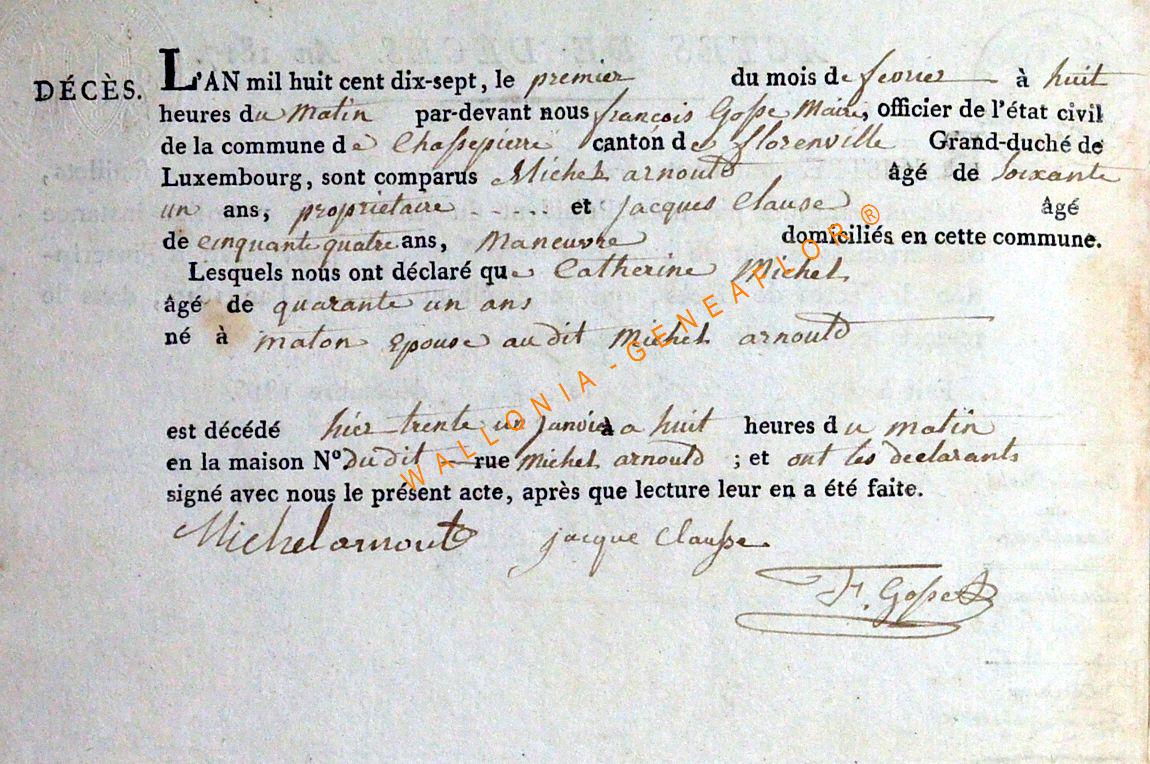 DÉCÈS. L'AN mil huit cent dix-sept, le premier du mois de fevrier à huit
heures du Matin par-devant nous françois Gosse Maire, officier de l'état civil
de la commune de Chassepierre canton de florenville Grand-duché de
Luxembourg, sont comparus Michel arnould âgé de Soixante
un ans, proprietaire ...... et jacques Clause âgé
de Cinquante quatre ans, Maneuvre domiciliés en cette commune.
Lesquels nous ont déclaré que Catherine Michel
âgé de quarante un ans
né à maton Epouse audit Michel arnould
est décédé hier trente un janvier à huit heures du matin
en la maison N° dudit rue Michel arnould ; et ont les declarants
signé avec nous le présent acte, après que lecture leur en a été faite.
Michel arnould jacque Clausse
F. Gosse
WALLONIA - GENEAPLOR ®